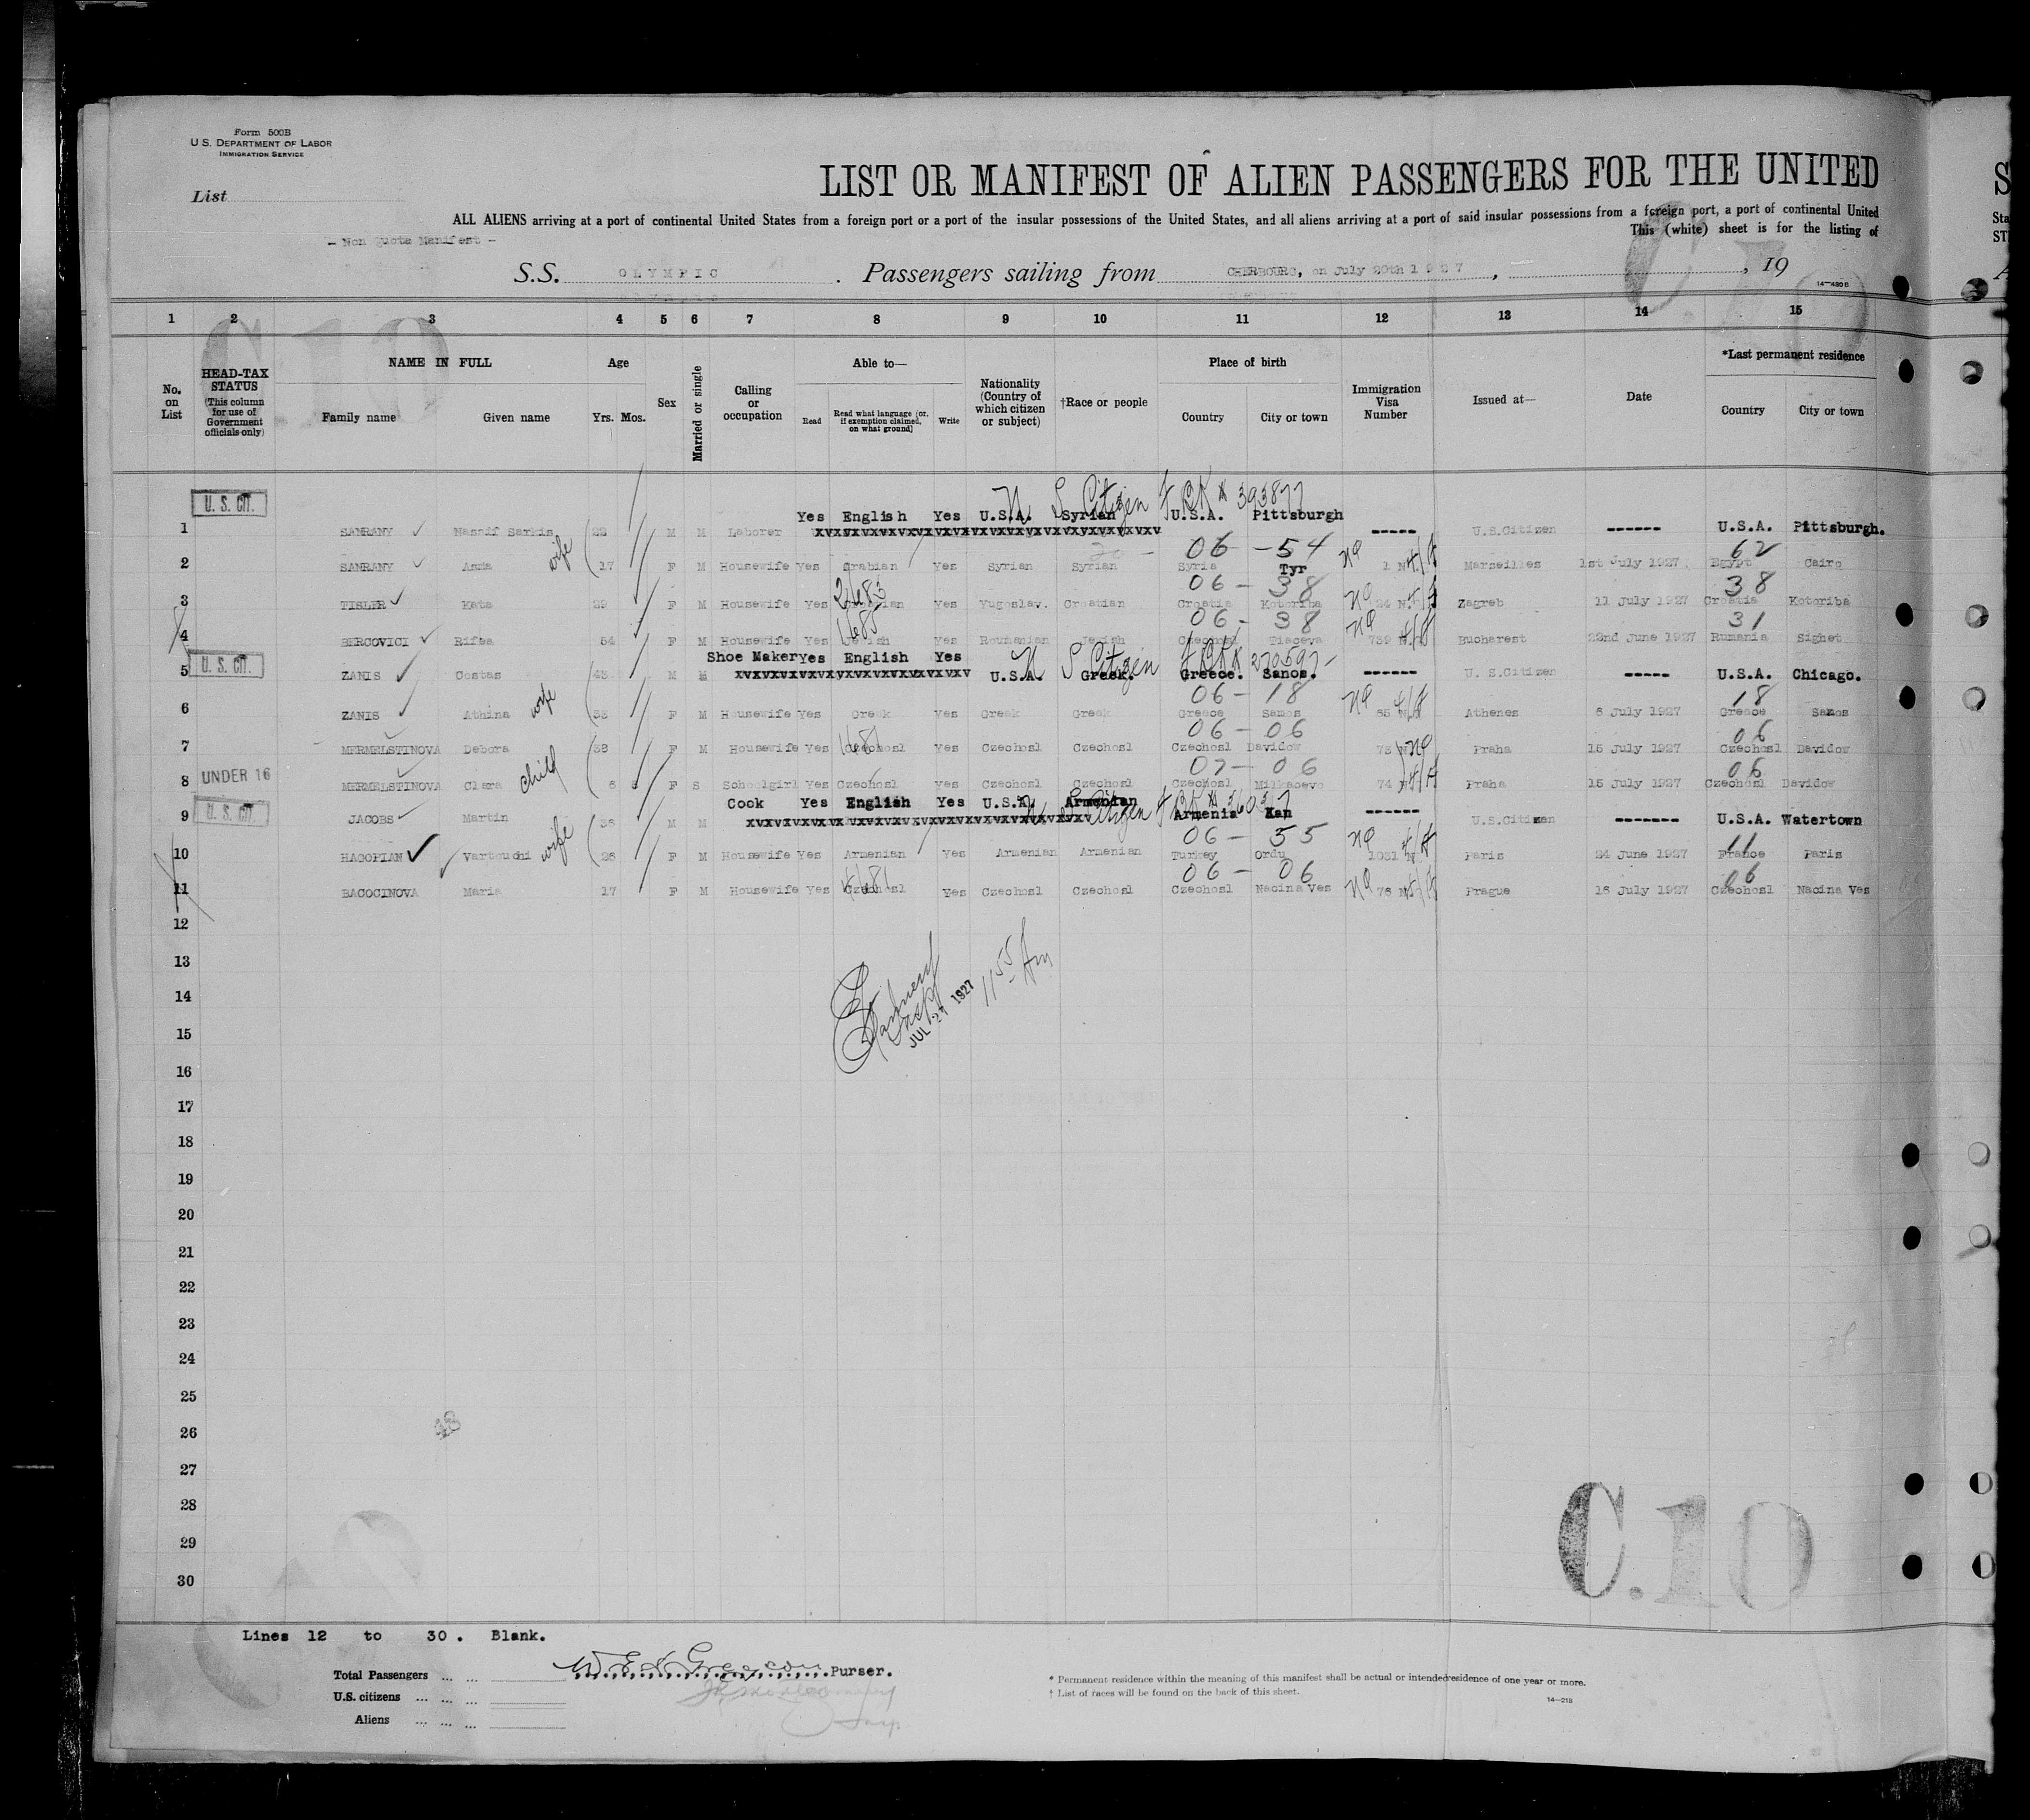 Form 500B
U. S. DEPARTMENT OF LABOR
IMMIGRATION SERVICE
List
LIST OR MANIFEST OF ALIEN PASSENGERS FOR THE UNITED
ALL ALIENS arriving at a port of continental United States from a foreign port or a port of the insular possessions of the United States, and all aliens arriving at a port of said insular possessions from a foreign port, a port of continental United
This (white) sheet is for the listing of
- Non Quota Manifest -
S.S. OLYMPIC . Passengers sailing from CHERBOURG, on July 20th 1927 , , 19
14—430 B
1 2 3 4 5 6 7 8 9 10 11 12 13 14 15
No. on List
HEAD-TAX STATUS (This column for use of Government officials only)
NAME IN FULL
Family name Given name
Age
Yrs. Mos.
Sex
Married or single
Calling or occupation
Able to—
Read Read what language (or, if exemption claimed, on what ground) Write
Nationality (Country of which citizen or subject)
†Race or people
Place of birth
Country City or town
Immigration Visa Number
Issued at—
Date
*Last permanent residence
Country City or town
U. S. CIT. U S Citizen 393877
Yes English Yes U.S.A. Syrian U.S.A. Pittsburgh
1 SAMRANY Nassif Sarkis 22 M M Laborer xvxvxvxvxvxvxvxvxvxvxvxvxvxvxvxvxvxvxv ----- U.S.Citizen ------ U.S.A. Pittsburgh.
wife 06 - 54 62
2 SAMRANY Asma 17 F M Housewife Yes Arabian Yes Syrian Syrian Syria Tyr 1 Marseilles 1st July 1927 Egypt Cairo
2683 06 - 38 38
3 TISLER Kata 29 F M Housewife Yes Croatian Yes Yugoslav. Croatian Croatia Kotoriba 24 Zagreb 11 July 1927 Croatia Kotoriba
06 - 38 31
4 BERCOVICI Rifba 54 F M Housewife Yes Jewish Yes Roumanian Jewish Czechosl Tiaceva 739 Bucharest 22nd June 1927 Rumania Sighet
U. S. CIT. Shoe Maker Yes English Yes U S Citizen 270597
5 ZANIS Costas 43 M M xvxvxvxvxvxvxvxvxvxvxvxvxvxv U.S.A. Greek. Greece. Samos. ------ U. S.Citizen ----- U.S.A. Chicago.
wife 06 - 18 18
6 ZANIS Athina 33 F M Housewife Yes Greek Yes Greek Greek Greece Samos 65 Athenes 6 July 1927 Greece Samos
06 - 06 06
7 MERMELSTINOVA Debora 38 F M Housewife Yes Czechosl Yes Czechosl Czechosl Czechosl Davidow 73 Praha 15 July 1927 Czechosl Davidow
UNDER 16 child 07 - 06 06
8 MERMELSTINOVA Clara 6 F S Schoolgirl Yes Czechosl Yes Czechosl Czechosl Czechosl 74 Praha 15 July 1927 Czechosl Davidow
U. S. CIT. Cook Yes English Yes U.S.A. Armenian Citizen
9 JACOBS Martin 36 M M xvxvxvxvxvxvxvxvxvxvxvxvxvxvxvxvxvxv Armenia Kan ------ U.S.Citizen ------- U.S.A. Watertown
wife 06 - 55 11
10 HAGOPIAN Vartouchi 26 F M Housewife Yes Armenian Yes Armenian Armenian Turkey Ordu 1031 Paris 24 June 1927 France Paris
06 - 06 06
11 BACOCINOVA Maria 17 F M Housewife Yes Czechosl Yes Czechosl Czechosl Czechosl Nacina Ves 76 Prague 16 July 1927 Czechosl Nacina Ves
12
13
14
JUL 27 1927 11 55 Am
15
16
17
18
19
20
21
22
23
24
25
26
27
28
29
30
C.10
Lines 12 to 30 . Blank.
Total Passengers ... ... Purser.
U.S. citizens ... ... ...
Aliens ... ... ...
* Permanent residence within the meaning of this manifest shall be actual or intended residence of one year or more.
† List of races will be found on the back of this sheet.
14—213